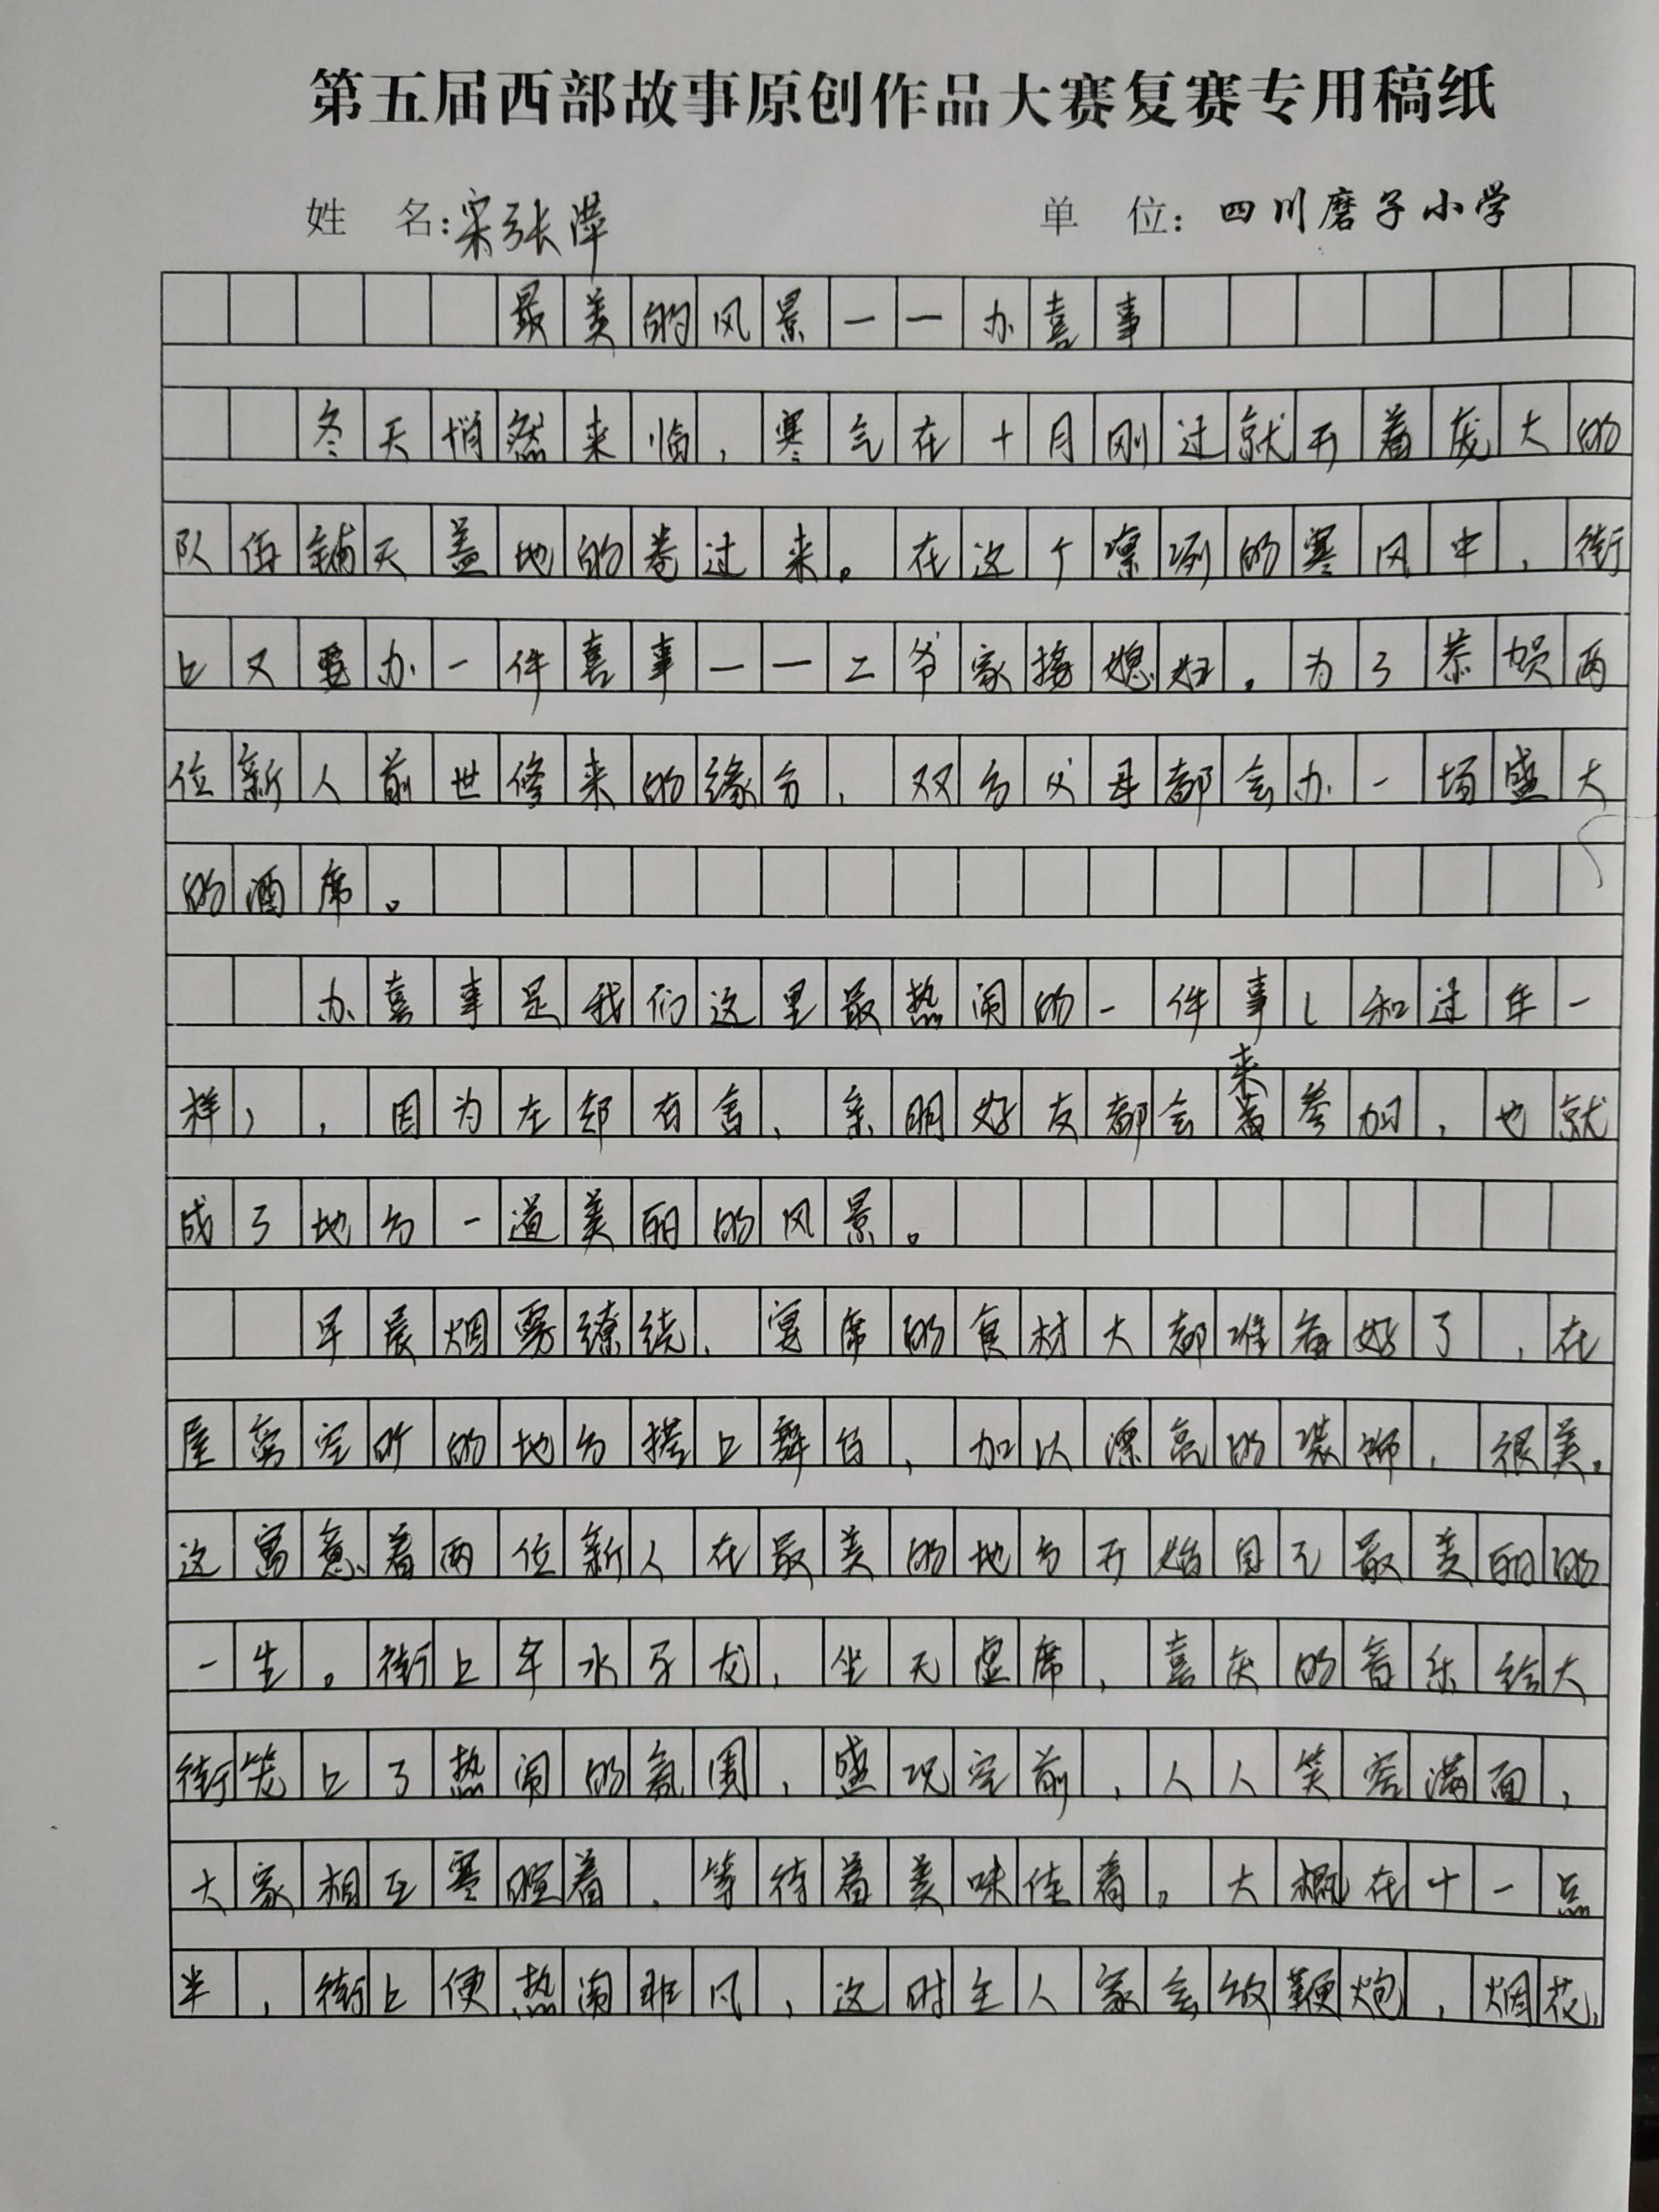 第五届西部故事原创作品大赛复赛专用稿纸
姓 名:宋张萍 单 位:四川磨子小学
最美的风景——办喜事
冬天悄然来临,寒气在十月刚过就开着庞大的
队伍铺天盖地的卷过来。在这个凛冽的寒风中,街
上又要办一件喜事——二爷家接媳妇。为了恭贺两
位新人前世修来的缘分,双方父母都会办一场盛大
的酒席。
办喜事是我们这里最热闹的一件事(和过年一
样),因为左邻右舍、亲朋好友都会来参加,也就
成了地方一道美丽的风景。
早晨烟雾缭绕,宴席的食材大都准备好了,在
屋旁空旷的地方搭上舞台,加以漂亮的装饰,很美。
这寓意着两位新人在最美的地方开始自己最美丽的
一生。街上车水马龙,坐无虚席,喜庆的音乐给大
街笼上了热闹的氛围,盛况空前,人人笑容满面,
大家相互寒暄着,等待着美味佳肴。大概在十一点
半,街上便热闹非凡,这时主人家会放鞭炮,烟花,